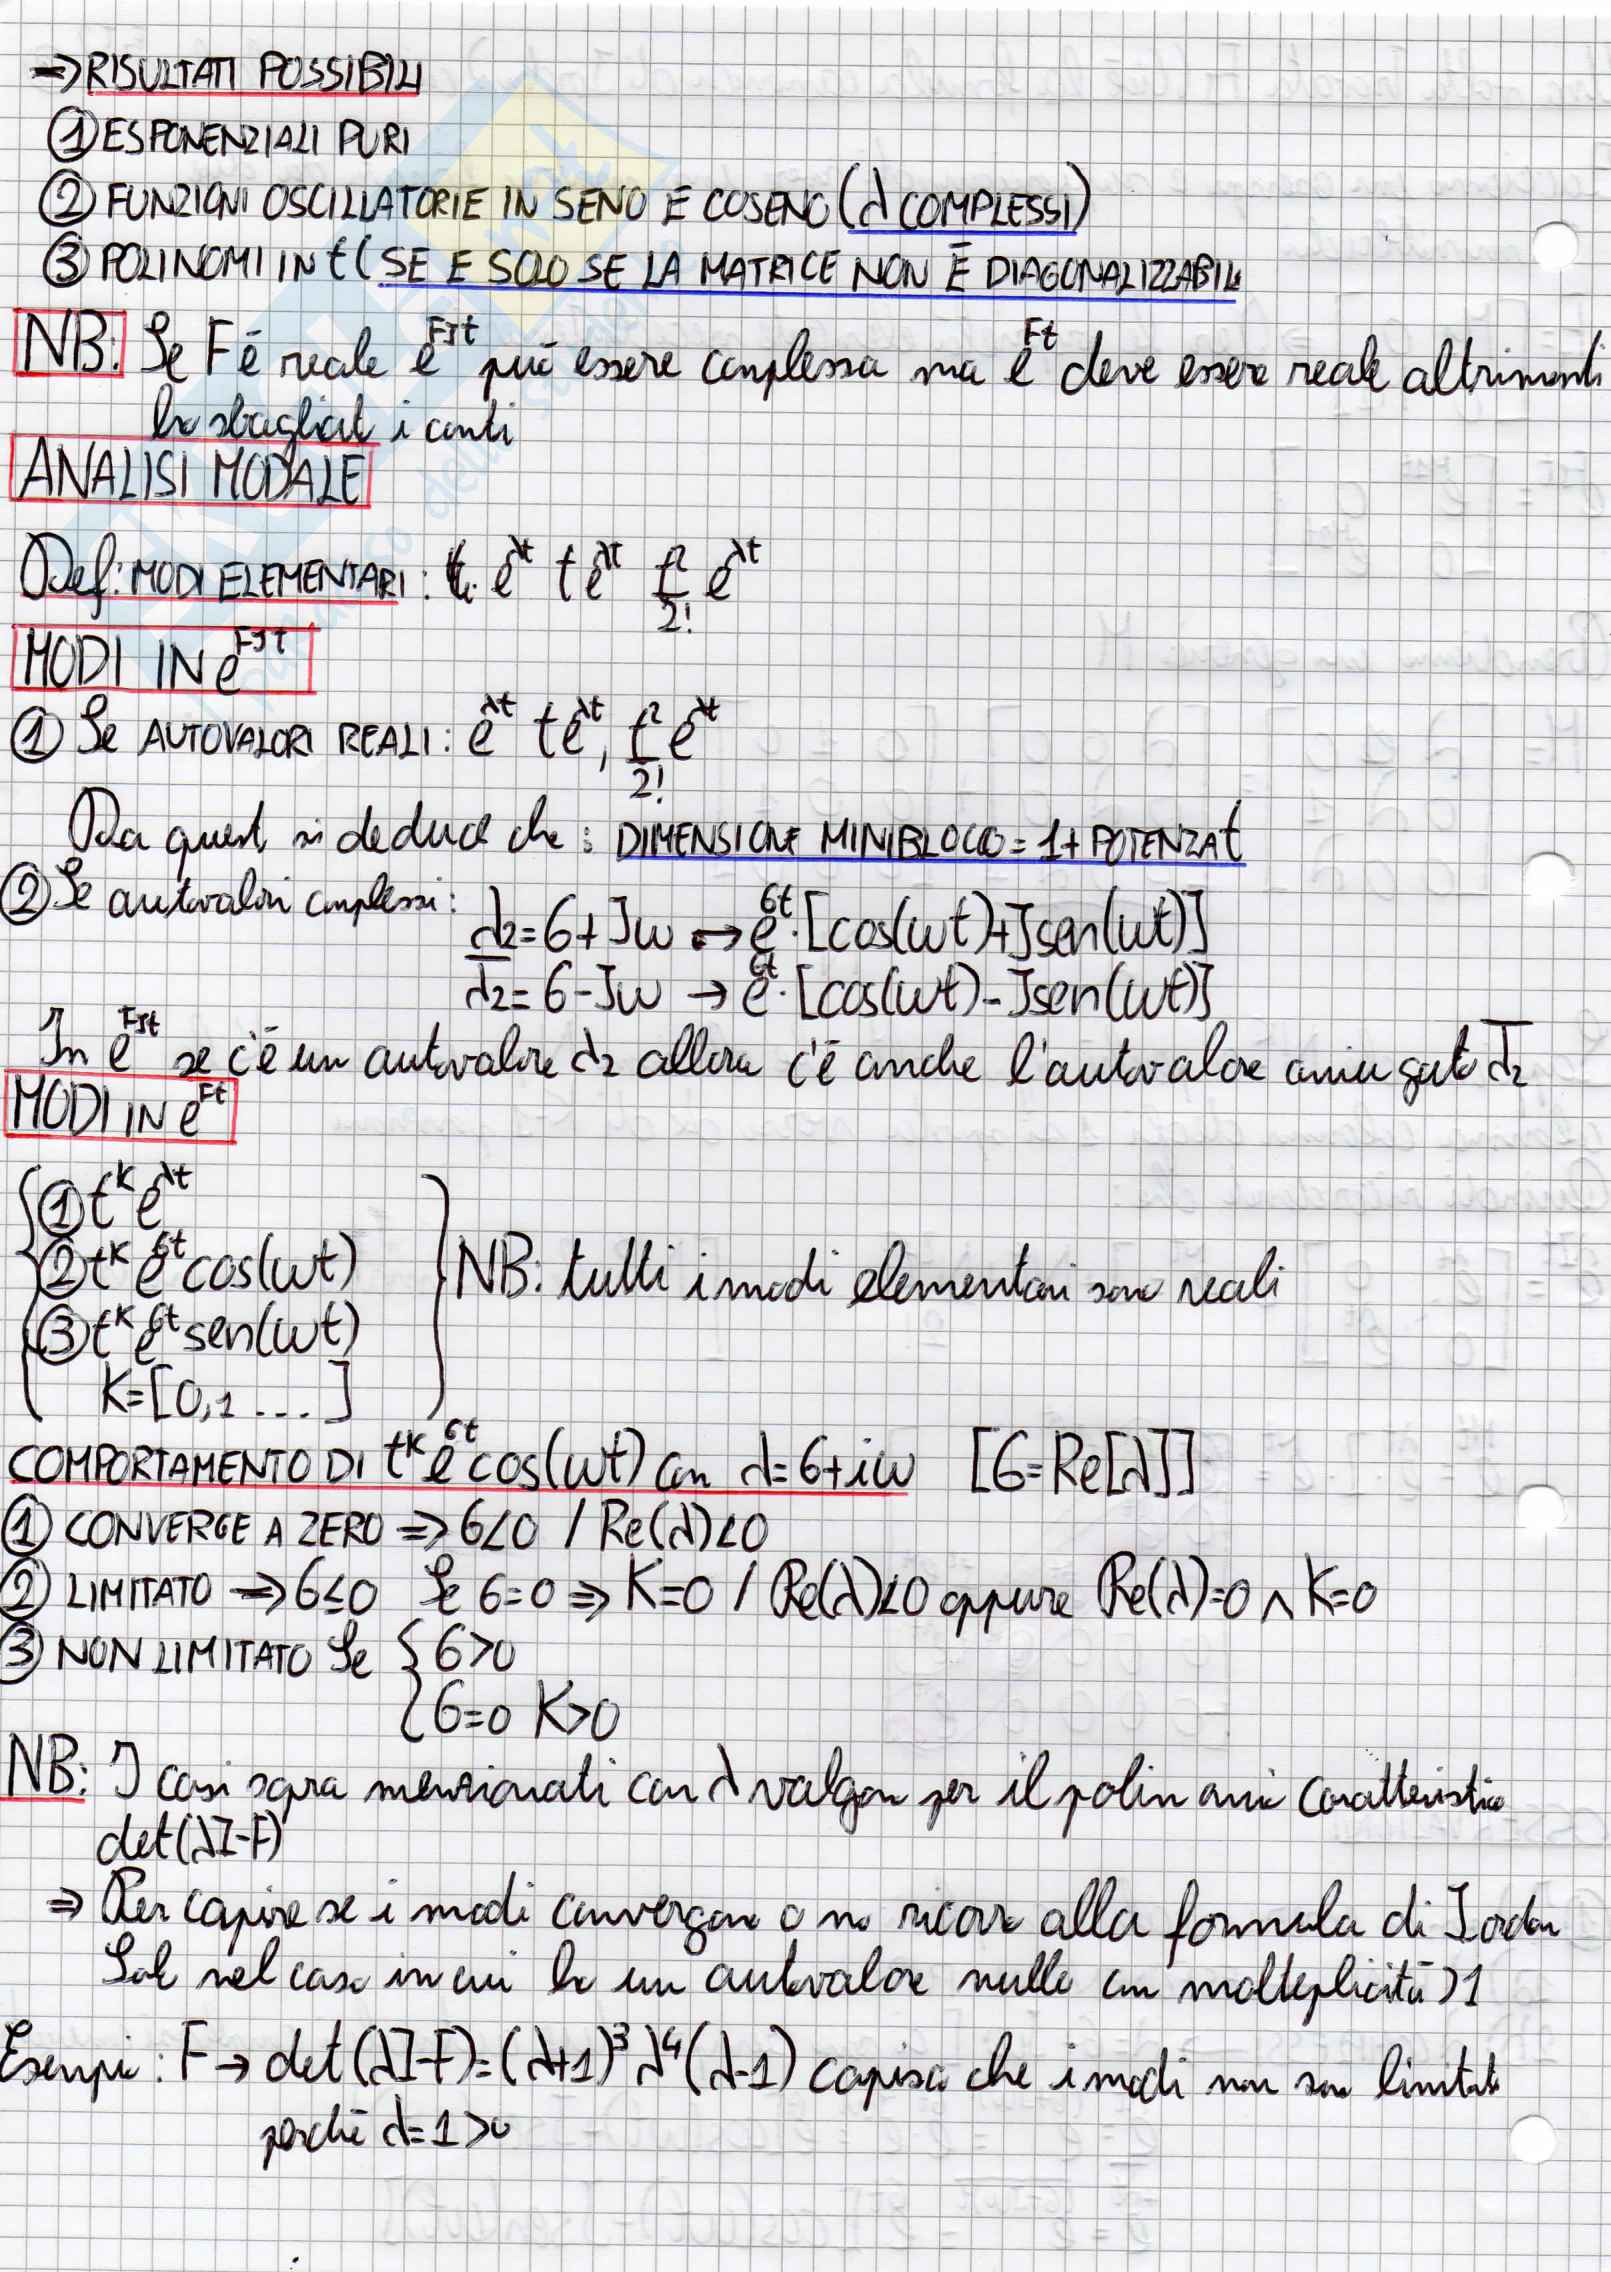 ⇒ RISULTATI POSSIBILI
① ESPONENZIALI PURI
② FUNZIONI OSCILLATORIE IN SENO E COSENO (λ COMPLESSI)
③ POLINOMI IN t (SE E SOLO SE LA MATRICE NON È DIAGONALIZZABILE
NB: Se F é reale e^{FJt} può essere complessa ma e^{Ft} deve essere reale altrimenti
ho sbagliato i conti
ANALISI MODALE
Def: MODI ELEMENTARI: e^{λt} te^{λt} t²/2! e^{λt}
MODI IN e^{FJt}
① Se AUTOVALORI REALI: e^{λt} te^{λt}, t²/2! e^{λt}
Da questo si deduce che: DIMENSIONE MINIBLOCCO = 1 + POTENZA t
② Se autovalori complessi:
λ2 = σ + Jω ↔ e^{σt}·[cos(ωt)+Jsen(ωt)]
λ̄2 = σ - Jω → e^{σt}·[cos(ωt)-Jsen(ωt)]
In e^{FJt} se c'é un autovalore λ2 allora c'é anche l'autovalore coniugato λ̄2
MODI IN e^{Ft}
① t^K e^{λt}
② t^K e^{σt} cos(ωt)
NB: tutti i modi elementari sono reali
③ t^K e^{σt} sen(ωt)
K=[0,1 ...]
COMPORTAMENTO DI t^K e^{σt} cos(ωt) con λ=σ+iω [σ=Re[λ]]
① CONVERGE A ZERO ⇒ σ<0 / Re(λ)<0
② LIMITATO ⇒ σ≤0 Se σ=0 ⇒ K=0 / Re(λ)<0 oppure Re(λ)=0 ∧ K=0
③ NON LIMITATO Se { σ>0
σ=0 K>0
NB: I casi sopra menzionati con λ valgono per il polinomio caratteristico
det(λI-F)
⇒ Per capire se i modi convergono o no ricorro alla formula di Jordan
Solo nel caso in cui ho un autovalore nullo con molteplicità >1
Esempio: F → det(λI-F)=(λ+1)³ λ⁴(λ-1) capisco che i modi non sono limitati
perché λ=1>0